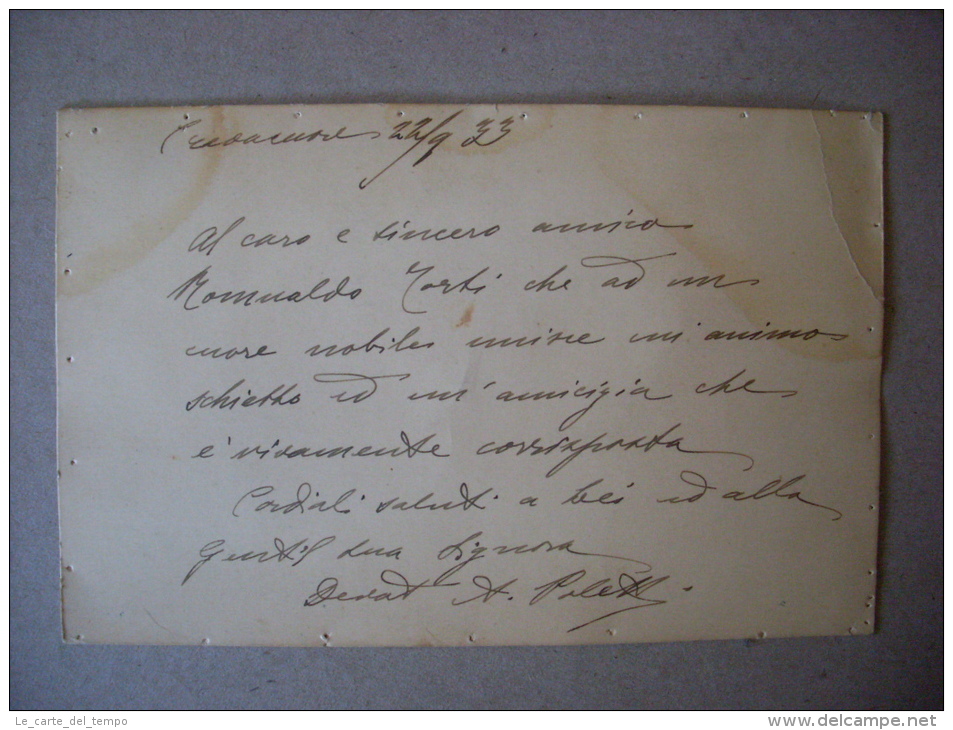 Crevacuore 22/9 33
Al caro e sincero amico
Romualdo Torti che ad un
cuore nobile unisce un'animo
schietto ed un'amicizia che
è vivamente corrisposta
Cordiali saluti a Lei ed alla
Gentil sua Signora
A.
Le_carte_del_tempo
www.delcampe.net